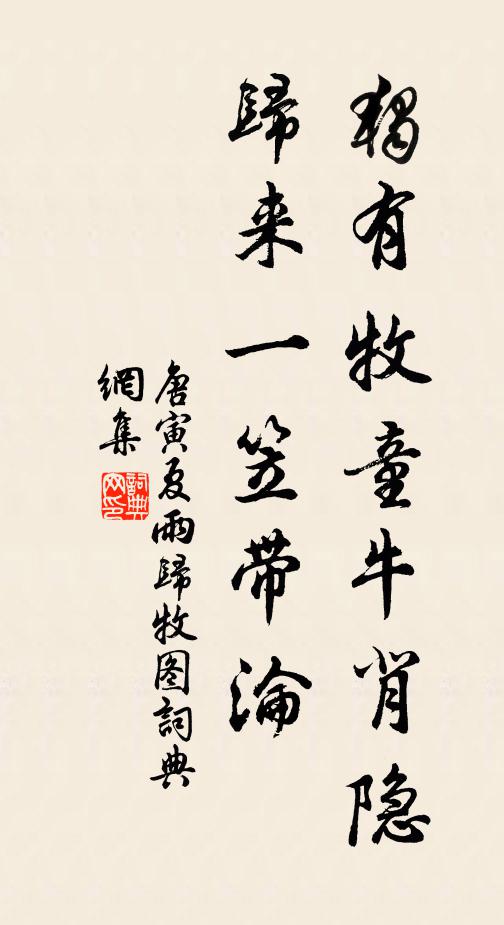 獨有牧童牛背隐
歸来一笠帶淪
唐寅夏雨歸牧图詞典
網集
詞典
网印